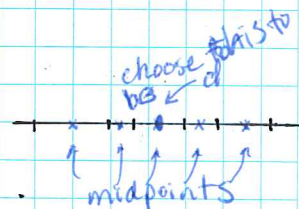 choose this to
be d
midpoints